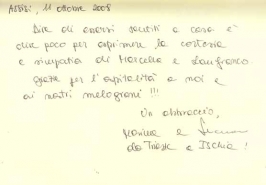 Assisi, 11 ottobre 2008
Dire di essersi sentiti a casa è
dire poco per esprimere la cortesia
e simpatia di Marcello e Gianfranco.
Grazie per l'ospitalità a noi e
ai nostri melograni !!!
Un abbraccio,
e
da Trieste e Ischia!